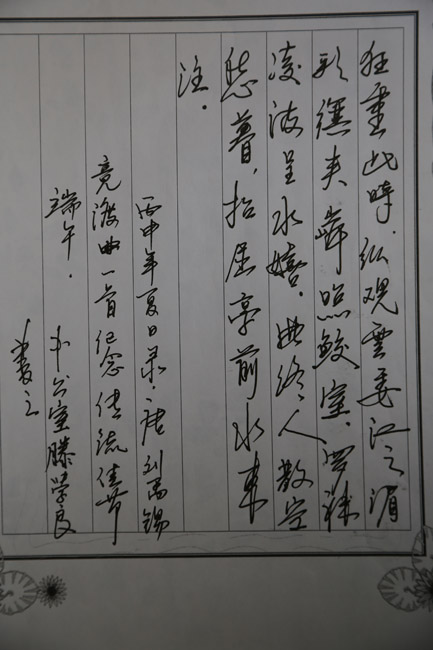 狂重此時.纵观雲委江之湄
彩夹岸照鲛室.罗袜
凌波呈水嬉.曲终人散空
愁暮.招屈亭前水东
注.
丙申年夏日录.唐刘禹锡
竞渡曲一首纪念传统佳节
端午.办公室滕良
书之